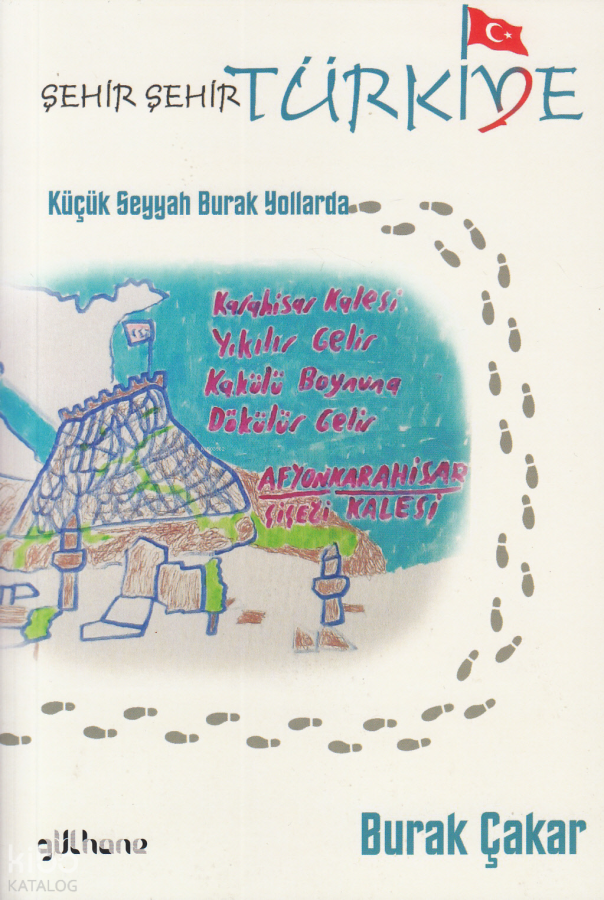 ŞEHİR ŞEHİR TÜRKİYE
Küçük Seyyah Burak Yollarda
Karahisar Kalesi
Yıkılır Gelir
Kakülü Boynuna
Dökülür Gelir
AFYONKARAHİSAR
ÇİÇEĞİ KALESİ
gülhane
Burak Çakar
KATALOG